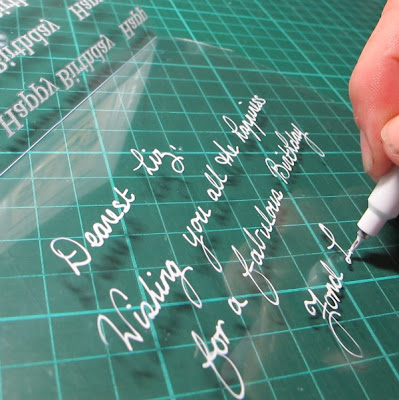 Birthday
Happy Birthday Happ
Dearest Liz,
Wishing you all the happiness
for a fabulous Birthday
Fond L